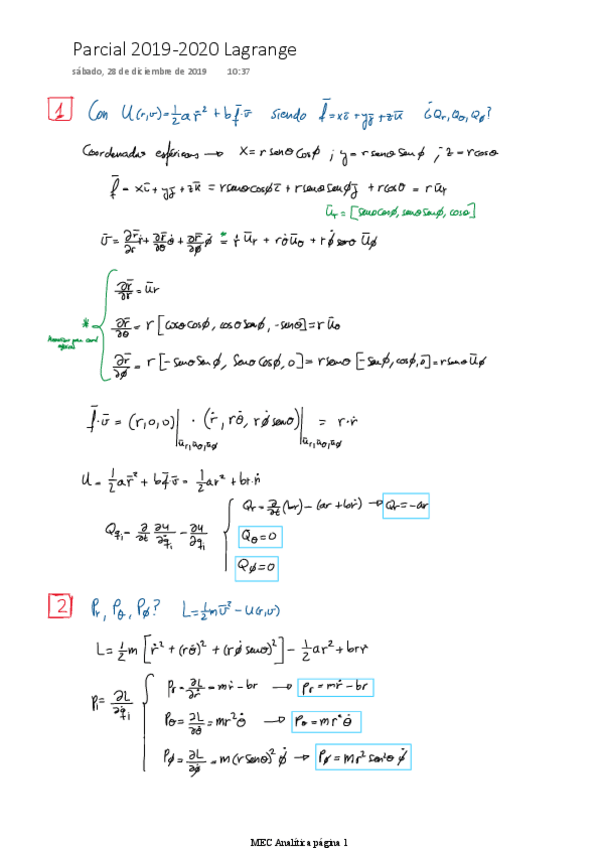 Parcial 2019-2020 Lagrange
sábado, 28 de diciembre de 2019 10:37
1 Con U(r,v)=½ar̄²+bf̄·v̄ siendo f̄=xī+yj̄+zk̄ ¿Qr,Qθ,Qφ?
Coordenadas esféricas → x=rsenθcosφ ; y=rsenθsenφ ; z=rcosθ
f̄=xī+yj̄+zk̄=rsenθcosφī+rsenθsenφj̄+rcosθ=rūr
ūr=[senθcosφ, senθsenφ, cosθ]
v̄=∂r̄/∂r ṙ+∂r̄/∂θ θ̇+∂r̄/∂φ φ̇ *= ṙūr+rθ̇ūθ+rφ̇senθūφ
∂r̄/∂r=ūr
* ∂r̄/∂θ=r[cosθcosφ, cosθsenφ, -senθ]=rūθ
∂r̄/∂φ=r[-senθsenφ, senθcosφ, 0]=rsenθ[-senφ, cosφ, 0]=rsenθūφ
f̄·v̄=(r,0,0)|ūr,ūθ,ūφ · (ṙ, rθ̇, rφ̇senθ)|ūr,ūθ,ūφ = r·ṙ
U=½ar̄²+bf̄·v̄=½ar²+br·ṙ
Qr=∂/∂t(br)-(ar+bṙ) → Qr=-ar
Qqi=∂/∂t ∂U/∂q̇i-∂U/∂qi
Qθ=0
Qφ=0
2 Pr, Pθ, Pφ? L=½mv̄²-U(r,v)
L=½m[ṙ²+(rθ̇)²+(rφ̇senθ)²]-½ar²+brṙ
Pr=∂L/∂ṙ=mṙ-br → Pr=mṙ-br
Pi=∂L/∂q̇i
Pθ=∂L/∂θ̇=mr²θ̇ → Pθ=mr²θ̇
Pφ=∂L/∂φ̇=m(rsenθ)²φ̇ → Pφ=mr²sen²θφ̇
MEC Analítica página 1